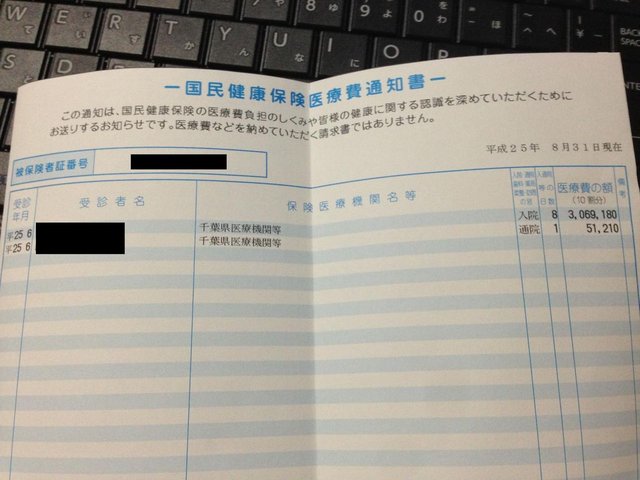 W E R T Y U I O P
BACK
SPACE
ENTER
ー国民健康保険医療費通知書ー
この通知は、国民健康保険の医療費負担のしくみや皆様の健康に関する認識を深めていただくために
お送りするお知らせです。医療費などを納めていただく請求書ではありません。
平成25年 8月31日現在
被保険者証番号
受診年月 受診者名 保険医療機関名等 日数 医療費の額(10割分) 備考
平25 6 千葉県医療機関等 入院 8 3,069,180
平25 6 千葉県医療機関等 通院 1 51,210